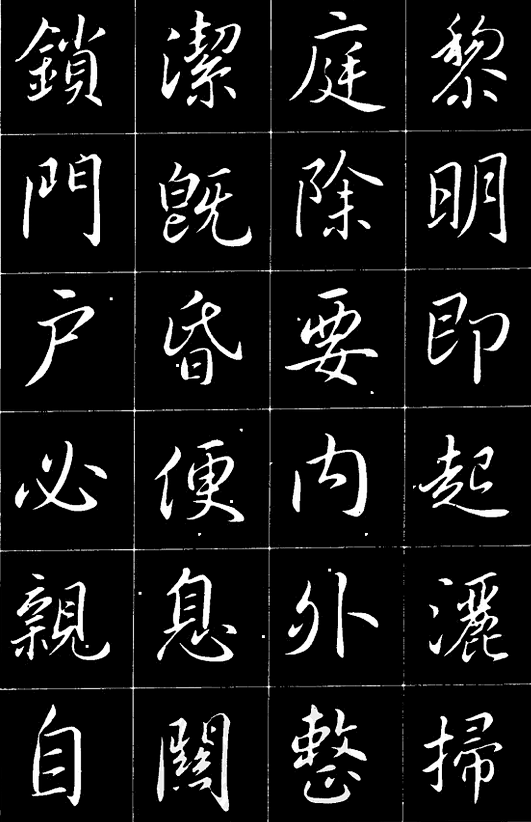 黎明即起灑掃
庭除要内外整
潔既昏便息關
鎖門户必親自